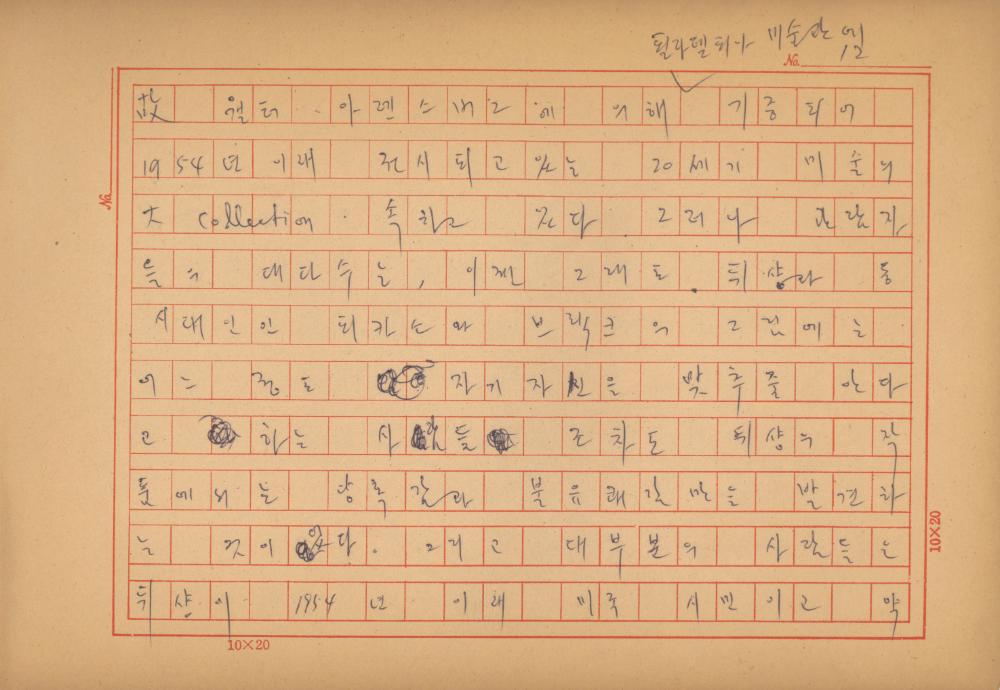 필라델피아 미술관에
No.
故 월터 아렌스버그에 의해 기증되어
1954년 이래 전시되고 있는 20세기 미술의
大 collection 속하고 있다 그러나 관람자
들의 대다수는, 이젠 그래도 뒤샹과 동
시대인인 피카소와 브락크의 그림에는
어느 정도 자기자신을 맞추줄 안다
고 하는 사람들 조차도 뒤샹의 작
품에서는 당혹감과 불유쾌감만을 발견하
는 것이었다. 그리고 대부분의 사람들은
뒤샹이 1954년 이래 미국 시민이고 약
No.
10×20
10×20